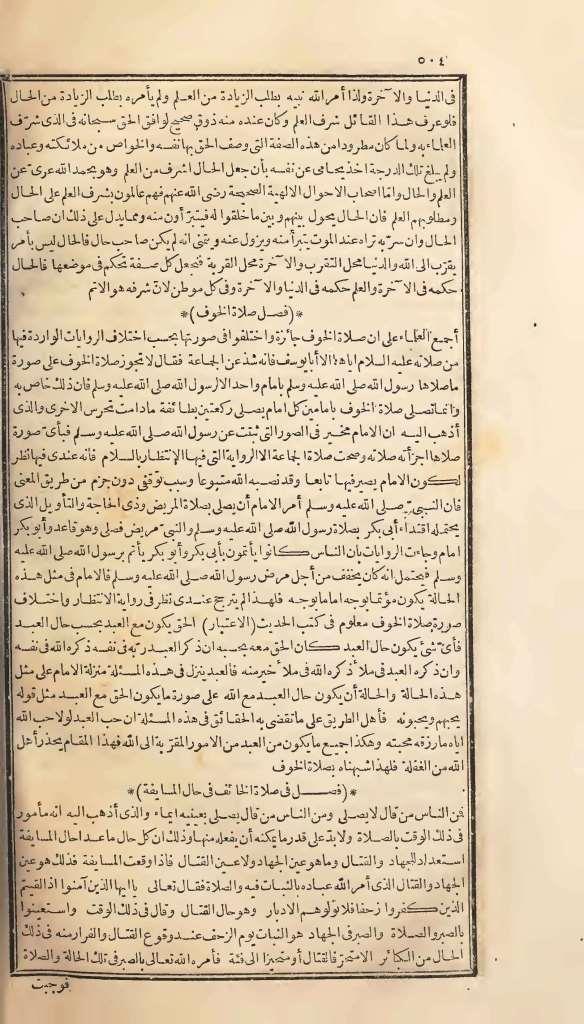 ٥٠٤
فى الدنيا والآخرة ولذا أمر الله نبيه بطلب الزيادة من العلم ولم يأمره بطلب الزيادة من الحال
فلو عرف هذا القائل شرف العلم وكان عنده منه ذوق صحيح لوافق الحق سبحانه فى الذى شرف
العلماء به ولما كان مطرودا من هذه الصفة التى وصف الحق بها نفسه والخواص من ملائكته وعباده
ولم يبلغ تلك الدرجة اخذ يحامى عن نفسه بأن جعل الحال اشرف من العلم وهو بحمد الله عرى عن
العلم والحال وامّا اصحاب الاحوال الالهية الصحيحة رضى الله عنهم فهم عالمون بشرف العلم على الحال
ومطلوبهم العلم فان الحال يحول بينهم وبين ما خلقوا له فيتبرّأون منه ومما يدل على ذلك ان صاحب
الحال وان سرّ به تراه عند الموت يتبرأ منه ويزول عنه ويتمنى انه لم يكن صاحب حال فالحال ليس بأمر
يقرّب الى الله والدنيا محل التقرب والآخرة محل القربة فنجعل كل صفة تحكم فى موضعها فالحال
حكمه فى الآخرة والعلم حكمه فى الدنيا والآخرة وفى كل موطن لانّ شرفه هو الاتم
*(فصل صلاة الخوف)*
أجمع العلماء على ان صلاة الخوف جائزة واختلفوا فى صورتها بحسب اختلاف الروايات الواردة فيها
من صلاته عليه السلام اياها الا أبا يوسف فانه شذ عن الجماعة فقال لا تجوز صلاة الخوف على صورة
ما صلاها رسول الله صلى الله عليه وسلم بامام واحد الا لرسول الله صلى الله عليه وسلم فان ذلك خاص به
وانما تصلى صلاة الخوف بامامين كل امام يصلى ركعتين بطائفة مادامت تحرس الاخرى والذى
أذهب اليه ان الامام مخير فى الصور التى ثبتت عن رسول الله صلى الله عليه وسلم فبأىّ صورة
صلاها اجزأته صلاته وصحت صلاة الجماعة الا الرواية التى فيها الانتظار بالسلام فانه عندى فيها نظر
لكون الامام يصير فيها تابعا وقد نصبه الله متبوعا وسبب توقفى دون جزم من طريق المعنى
فان النبىّ صلى الله عليه وسلم أمر الامام أن يصلى بصلاة المريض وذى الحاجة والتأويل الذى
يحتمله اقتداء أبى بكر بصلاة رسول الله صلى الله عليه وسلم والنبىّ مريض فصلى وهو قاعد وأبو بكر
امام وجاءت الروايات بان الناس كانوا يأتمون بأبى بكر وأبو بكر يأتم برسول الله صلى الله عليه
وسلم فيحتمل انه كان يخفف من أجل مرض رسول الله صلى الله عليه وسلم فالامام فى مثل هذه
الحالة يكون مؤتما بوجه اماما بوجه فلهذا لم يترجح عندى نظر فى رواية الانتظار واختلاف
صورة صلاة الخوف معلوم فى كتب الحديث (الاعتبار) الحق يكون مع العبد بحسب حال العبد
فأىّ شئ يكون حال العبد كان الحق معه بحسبه ان ذكر العبد ربه فى نفسه ذكره الله فى نفسه
وان ذكره العبد فى ملأ ذكره الله فى ملأ خير منه فالعبد ينزل فى هذه المسئلة منزلة الامام على مثل
هذه الحالة والحالة أن يكون حال العبد مع الله على صورة ما يكون الحق مع العبد مثل قوله
يحبهم ويحبونه فأهل الطريق على ما تقضى به الحقائق فى هذه المسئلة ان حب العبد لولا حب الله
اياه ما رزقه محبته وهكذا جميع ما يكون من العبد من الامور المقرّبة الى الله فهذا المقام يحذر أهل
الله من الغفلة فلهذا شبهناه بصلاة الخوف
*(فصل فى صلاة الخائف فى حال المسايفة)*
فمن الناس من قال لا يصلى ومن الناس من قال يصلى بعينيه ايماء والذى أذهب اليه انه مأمور
فى ذلك الوقت بالصلاة ولا بدّ على قدر ما يمكنه أن يفعله منها وذلك ان كل حال ما عدا حال المسايفة
استعداد للجهاد والقتال وما هو عين الجهاد ولا عين القتال فاذا وقعت المسايفة فذلك هو عين
الجهاد والقتال الذى أمر الله عباده بالثبات فيه والصلاة فقال تعالى يا ايها الذين آمنوا اذا لقيتم
الذين كفروا زحفا فلا تولوهم الادبار وهو حال القتال وقال فى ذلك الوقت واستعينوا
بالصبر والصلاة والصبر فى الجهاد هو الثبات يوم الزحف عند وقوع القتال والفرار منه فى ذلك
الحال من الكبائر الا متحرّفا لقتال أو متحيزا الى فئة فأمره الله تعالى بالصبر فى تلك الحالة والصلاة
فوجبت